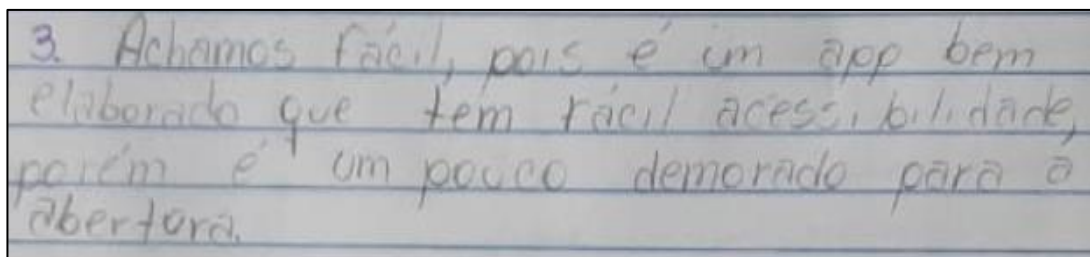 3. Achamos fácil, pois é um app bem
elaborado que tem fácil acessibilidade,
porém é um pouco demorado para a
abertura.